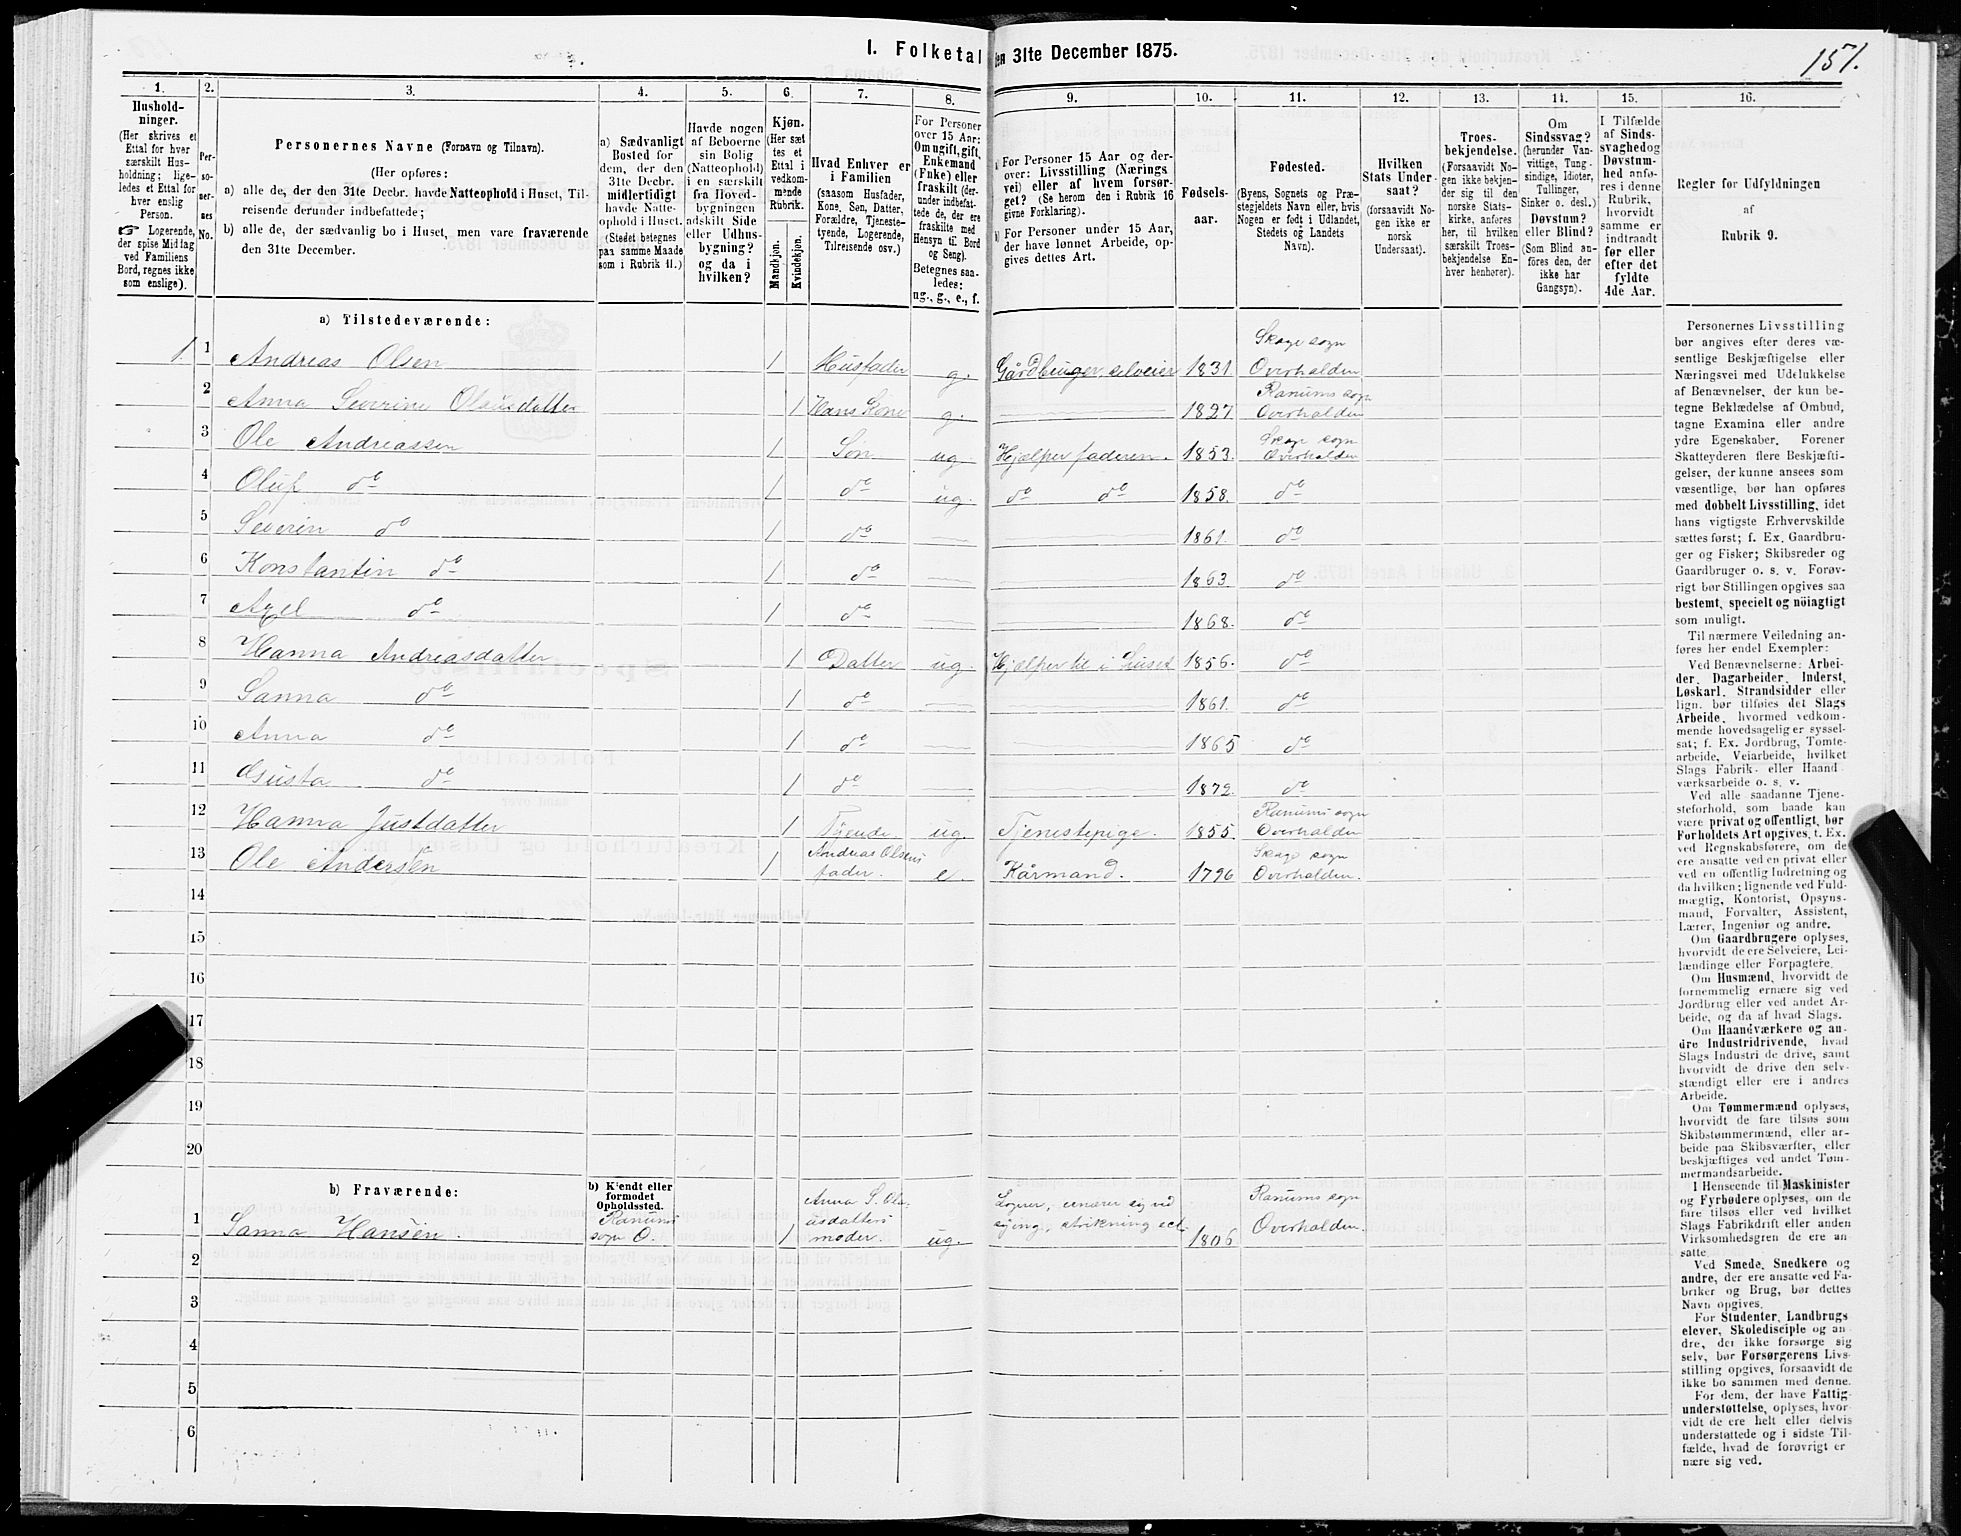 I. Folketal den 31te December 1875.
151.
1.
Hushold-
ninger.
(Her skrives et
Ettal for hver
særskilt Hus-
holdning; lige-
ledes et Ettal for
hver enslig
Person.
☞ Logerende,
der spise Middag
ved Familiens
Bord, regnes ikke
som enslige).
2.
Per-
so-
ner-
nes
No.
3.
Personernes Navne (Fornavn og Tilnavn).
(Her opføres:
a) alle de, der den 31te Decbr. havde Natteophold i Huset, Til-
reisende derunder indbefattede;
b) alle de, der sædvanlig bo i Huset, men vare fraværende
den 31te December.
4.
a) Sædvanligt
Bosted for
dem, der den
31te Decbr.
midlertidigt
havde Natte-
ophold i Huset.
(Stedet betegnes
paa samme Maade
som i Rubrik 11.)
5.
Havde nogen
af Beboerne
sin Bolig
(Natteophold)
i en særskilt
fra Hoved-
bygningen
adskilt Side
eller Udhus-
bygning?
og da i
hvilken?
6.
Kjøn.
(Her sæt
tes et
Ettal i
vedkom-
mende
Rubrik.
Mandkjøn.
Kvindekjøn.
7.
Hvad Enhver er
i Familien
(saasom Husfader,
Kone, Søn, Datter,
Forældre, Tjeneste-
tyende, Logerende,
Tilreisende osv.)
8.
For Personer
over 15 Aar:
Om ugift, gift,
Enkemand
(Enke) eller
fraskilt (der-
under indbefat-
tede de, der ere
fraskilte med
Hensyn til Bord
og Seng).
Betegnes saa-
ledes:
ug., g., e., f.
9.
a) For Personer 15 Aar og der-
over: Livsstilling (Nærings
vei) eller af hvem forsør-
get? (Se herom den i Rubrik 16
givne Forklaring).
b) For Personer under 15 Aar,
der have lønnet Arbeide, op-
gives dettes Art.
10.
Fødsels-
aar.
11.
Fødested.
(Byens, Sognets og Præ-
stegjeldets Navn eller, hvis
Nogen er født i Udlandet,
Stedets og Landets
Navn).
12.
Hvilken
Stats Under-
saat?
(forsaavidt No-
gen ikke er
norsk
Undersaat).
13.
Troes-
bekjendelse.
(Forsaavidt No-
gen ikke bekjen-
der sig til den
norske Stats-
kirke, anføres
her, til hvilken
særskilt Troes-
bekjendelse En-
hver henhører).
14.
Om
Sindssvag?
(herunder Van-
vittige, Tung-
sindige, Idioter,
Tullinger,
Sinker o. desl.)
Døvstum?
eller Blind?
(Som Blind an-
føres den, der
ikke har
Gangsyn).
15.
I Tilfælde
af Sinds-
svaghed og
Døvstum-
hed anfø-
res i denne
Rubrik,
hvorvidt
samme er
indtraadt
før eller
efter det
fyldte
4de Aar.
16.
Regler for Udfyldningen
af
Rubrik 9.
a) Tilstedeværende:
1. 1 Andreas Olsen 1 Husfader g. Gårdbruger, selveier 1831 Skage sogn Overhalden
2 Anna Severine Olausdatter 1 Hans Kone g. 1827 Ranums sogn Overhalden
3 Ole Andreassen 1 Søn ug. Hjælper faderen. 1853. Skage sogn Overhalden
4 Oluf do 1 do ug. do do 1858. do
5 Severin do 1 do 1861. do
6 Konstantin do 1 do 1863. do
7 Axel do 1 do 1868. do
8 Hanna Andreasdatter 1 Datter ug. Hjælper til i huset 1856. do
9 Sanna do 1 do 1861. do
10 Anna do 1 do 1865 do
11 Gusta do 1 do 1872. do
12 Hanna Justdatter 1 Tyende. ug. Tjenestepige. 1855. Ranums sogn Overhalden
13 Ole Andersen 1 Andreas Olsens fader. e Kårmand. 1796 Skage sogn Overhalden.
14
15
16
17
18
19
20
b) Fraværende:
b) Kjendt eller
formodet
Opholdssted.
1 Sanna Hansen. Ranums sogn O. 1 Anna S. Olausdatters moder. ug. Logerer, ernærer sig ved sying, strikning ect. 1806 Ranums sogn Overhalden.
2
3
4
5
6
Personernes Livsstilling
bør angives efter deres væ-
sentlige Beskjæftigelse eller
Næringsvei med Udelukkelse
af Benævnelser, der kun be-
tegne Beklædelse af Ombud,
tagne Examina eller andre
ydre Egenskaber. Forener
Skatteyderen flere Beskjæfti-
gelser, der kunne ansees som
væsentlige, bør han opføres
med dobbelt Livsstilling, idet
hans vigtigste Erhvervskilde
sættes først; f. Ex. Gaardbru-
ger og Fisker; Skibsreder og
Gaardbruger o. s. v. Forøv-
rigt bør Stillingen opgives saa
bestemt, specielt og nöiagtigt
som muligt.
Til nærmere Veiledning an-
føres her endel Exempler:
Ved Benævnelserne: Arbei-
der, Dagarbeider, Inderst,
Løskarl, Strandsidder eller
lign. bør tilføies det Slags
Arbeide, hvormed vedkom-
mende hovedsagelig er syssel-
sat; f. Ex. Jordbrug, Tomte-
arbeide, Veiarbeide, hvilket
Slags Fabrik- eller Haand-
værksarbeide o. s. v.
Ved alle saadanne Tjene-
steforhold, som baade kan
være privat og offentligt, bør
Forholdets Art opgives, t. Ex.
ved Regnskabsførere, om de
ere ansatte ved en privat eller
ved en offentlig Indretning og
da hvilken; lignende ved Fuld-
mægtig, Kontorist, Opsyns-
mand, Forvalter, Assistent,
Lærer, Ingeniør og andre.
Om Gaardbrugere oplyses,
hvorvidt de ere Selveiere, Lei-
lændinge eller Forpagtere.
Om Husmænd, hvorvidt de
fornemmelig ernære sig ved
Jordbrug eller ved andet Ar-
beide, og da af hvad Slags.
Om Haandværkere og an-
dre Industridrivende, hvad
Slags Industri de drive, samt
hvorvidt de drive den selv-
stændigt eller ere i andres
Arbeide.
Om Tømmermænd oplyses,
hvorvidt de fare tilsøs som
Skibstømmermænd, eller ar-
beide paa Skibsværfter, eller
beskjæftiges ved andet Tøm-
mermandsarbeide.
I Henseende til Maskinister
og Fyrbødere oplyses, om de
fare tilsøs eller ved hvilket
Slags Fabrikdrift eller anden
Virksomhedsgren de ere an-
satte.
Ved Smede, Snedkere og
andre, der ere ansatte ved Fa-
briker og Brug, bør dettes
Navn opgives.
For Studenter, Landbrugs-
elever, Skoledisciple og an-
dre, der ikke forsørge sig
selv, bør Forsørgerens Livs-
stilling opgives, forsaavidt de
ikke bo sammen med denne.
For dem, der have Fattig-
understøttelse, oplyses, hvor-
vidt de ere helt eller delvis
understøttede og i sidste Til-
fælde, hvad de forøvrigt er-
nære sig ved.